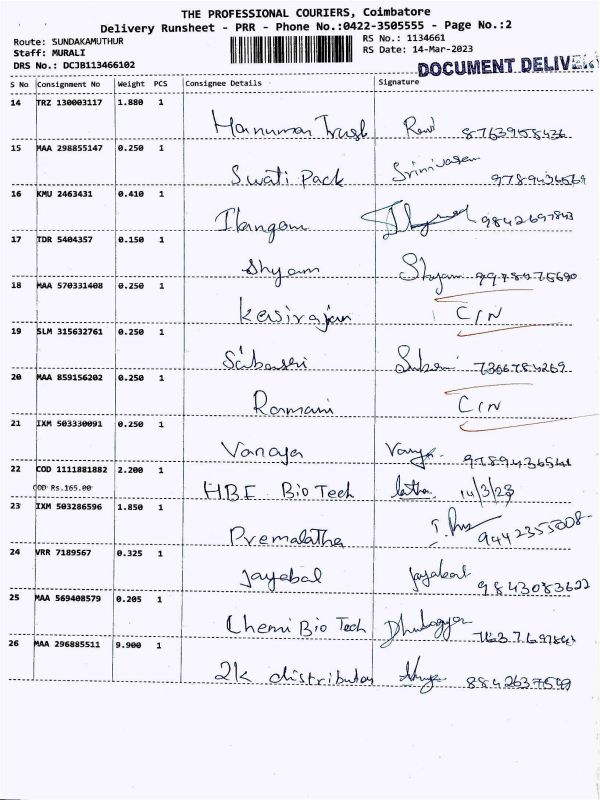 THE PROFESSIONAL COURIERS, Coimbatore
Delivery Runsheet - PRR - Phone No.:0422-3505555 - Page No.:2
Route: SUNDAKAMUTHUR
Staff: MURALI
DRS No.: DCJB113466102
RS No.: 1134661
RS Date: 14-Mar-2023
DOCUMENT DELIVER
S No Consignment No Weight PCS Consignee Details Signature
14 TRZ 130003117 1.880 1
Hanuman Trust Ravi
15 MAA 298855147 0.250 1
Swati Pack Srinivasan
16 KMU 2463431 0.410 1
Ilangam 9842697843
17 TDR 5404357 0.150 1
Shyam Shyam
18 MAA 570331408 0.250 1
Kavirajan C/N
19 SLM 315632761 0.250 1
Sabaseri
20 MAA 859156202 0.250 1
Ramani C/N
21 IXM 503330091 0.250 1
Vanaja Vanaja
22 COD 1111881882 2.200 1
COD Rs.165.00
HBE Bio Tech latha 14/3/23
23 IXM 503286596 1.850 1
Premalatha 9442355008
24 VRR 7189567 0.325 1
Jayabal Jayabal 9843083622
25 MAA 569408579 0.205 1
Chemi Bio Tech
26 MAA 296885511 9.900 1
2k distributor